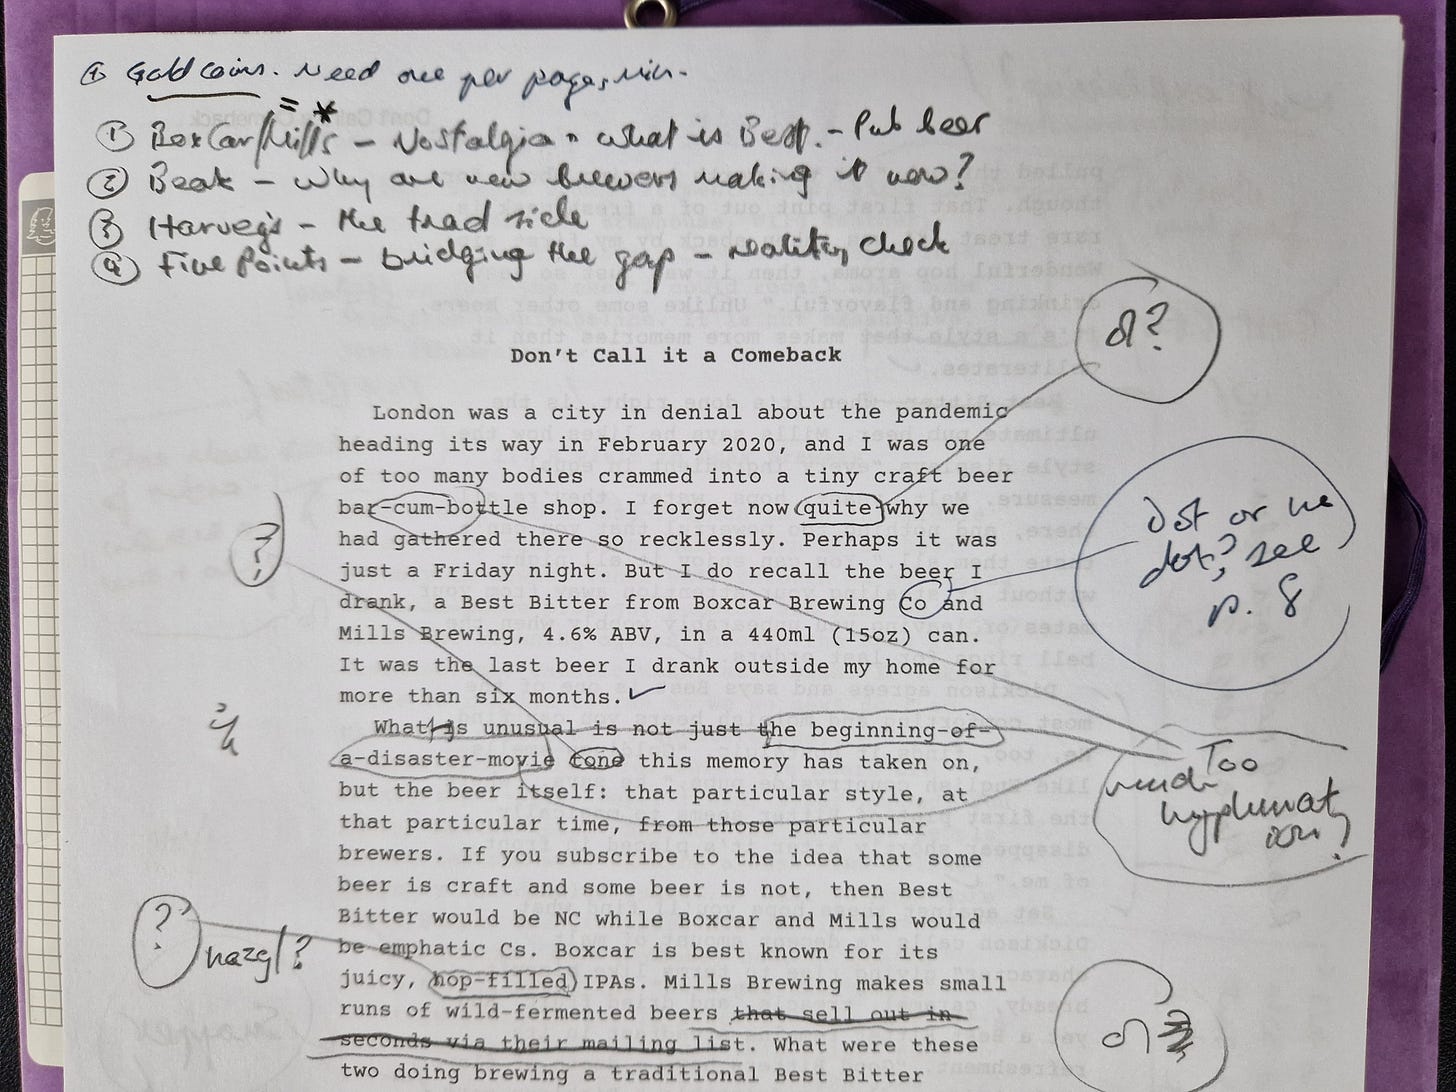 ④ Gold coins. Need one per page, min.
= *
① BoxCar/Mills - Nostalgia - what is Best. - Pub beer
② Beak - Why are new brewers making it now?
③ Harvey's - the trad side
④ Five Points - bridging the gap - reality check
Don't Call it a Comeback
?
London was a city in denial about the pandemic
heading its way in February 2020, and I was one
of too many bodies crammed into a tiny craft beer
bar-cum-bottle shop. I forget now quite why we
had gathered there so recklessly. Perhaps it was
just a Friday night. But I do recall the beer I
drank, a Best Bitter from Boxcar Brewing Co and
Mills Brewing, 4.6% ABV, in a 440ml (15oz) can.
It was the last beer I drank outside my home for
more than six months.
?
Dot or no
dot? see
p. 8
What is unusual is not just the beginning-of-
a-disaster-movie tone this memory has taken on,
but the beer itself: that particular style, at
that particular time, from those particular
brewers. If you subscribe to the idea that some
beer is craft and some beer is not, then Best
Bitter would be NC while Boxcar and Mills would
be emphatic Cs. Boxcar is best known for its
juicy, hop-filled IPAs. Mills Brewing makes small
runs of wild-fermented beers that sell out in
seconds via their mailing list. What were these
two doing brewing a traditional Best Bitter
Too
much
hyphenat
ion?
?